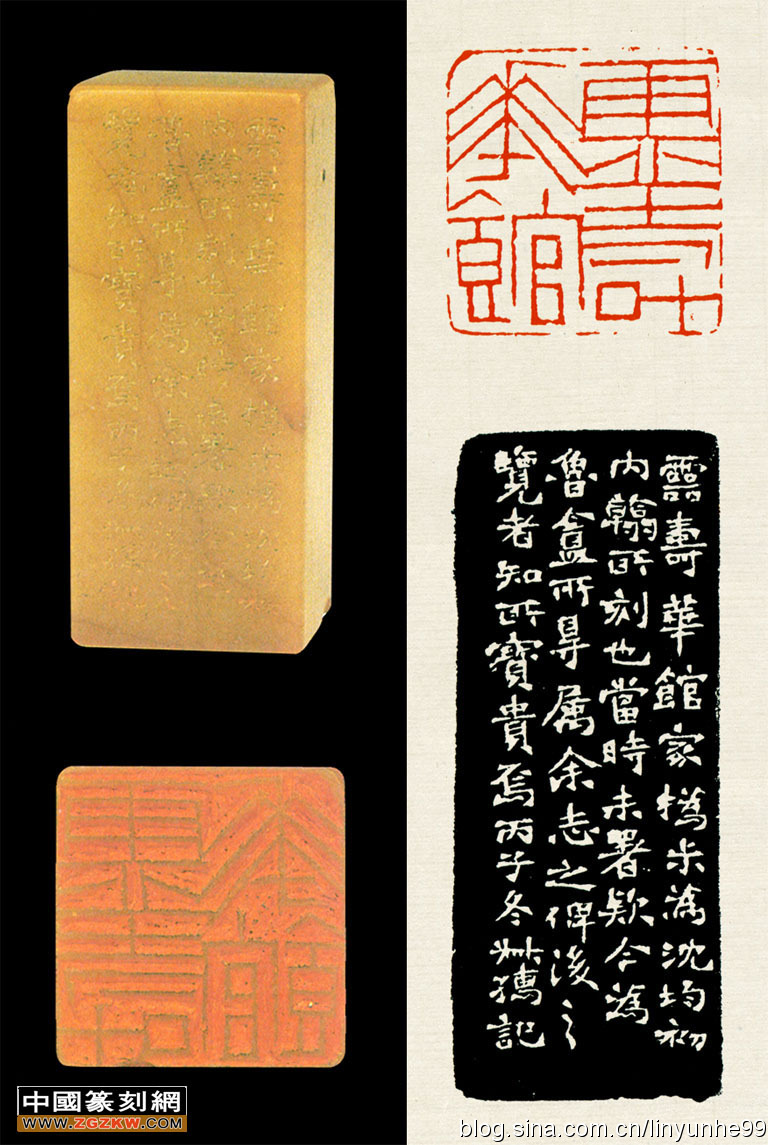 靈壽
華館
靈壽華館家撝尗為沈均初
內翰所刻也當時未署欵今為
魯盦所㝵属余志之俾後之
覽者知所寶貴焉丙子冬尗孺記
中國篆刻網
www.ZGZKW.com
blog.sina.com.cn/linyunhe99